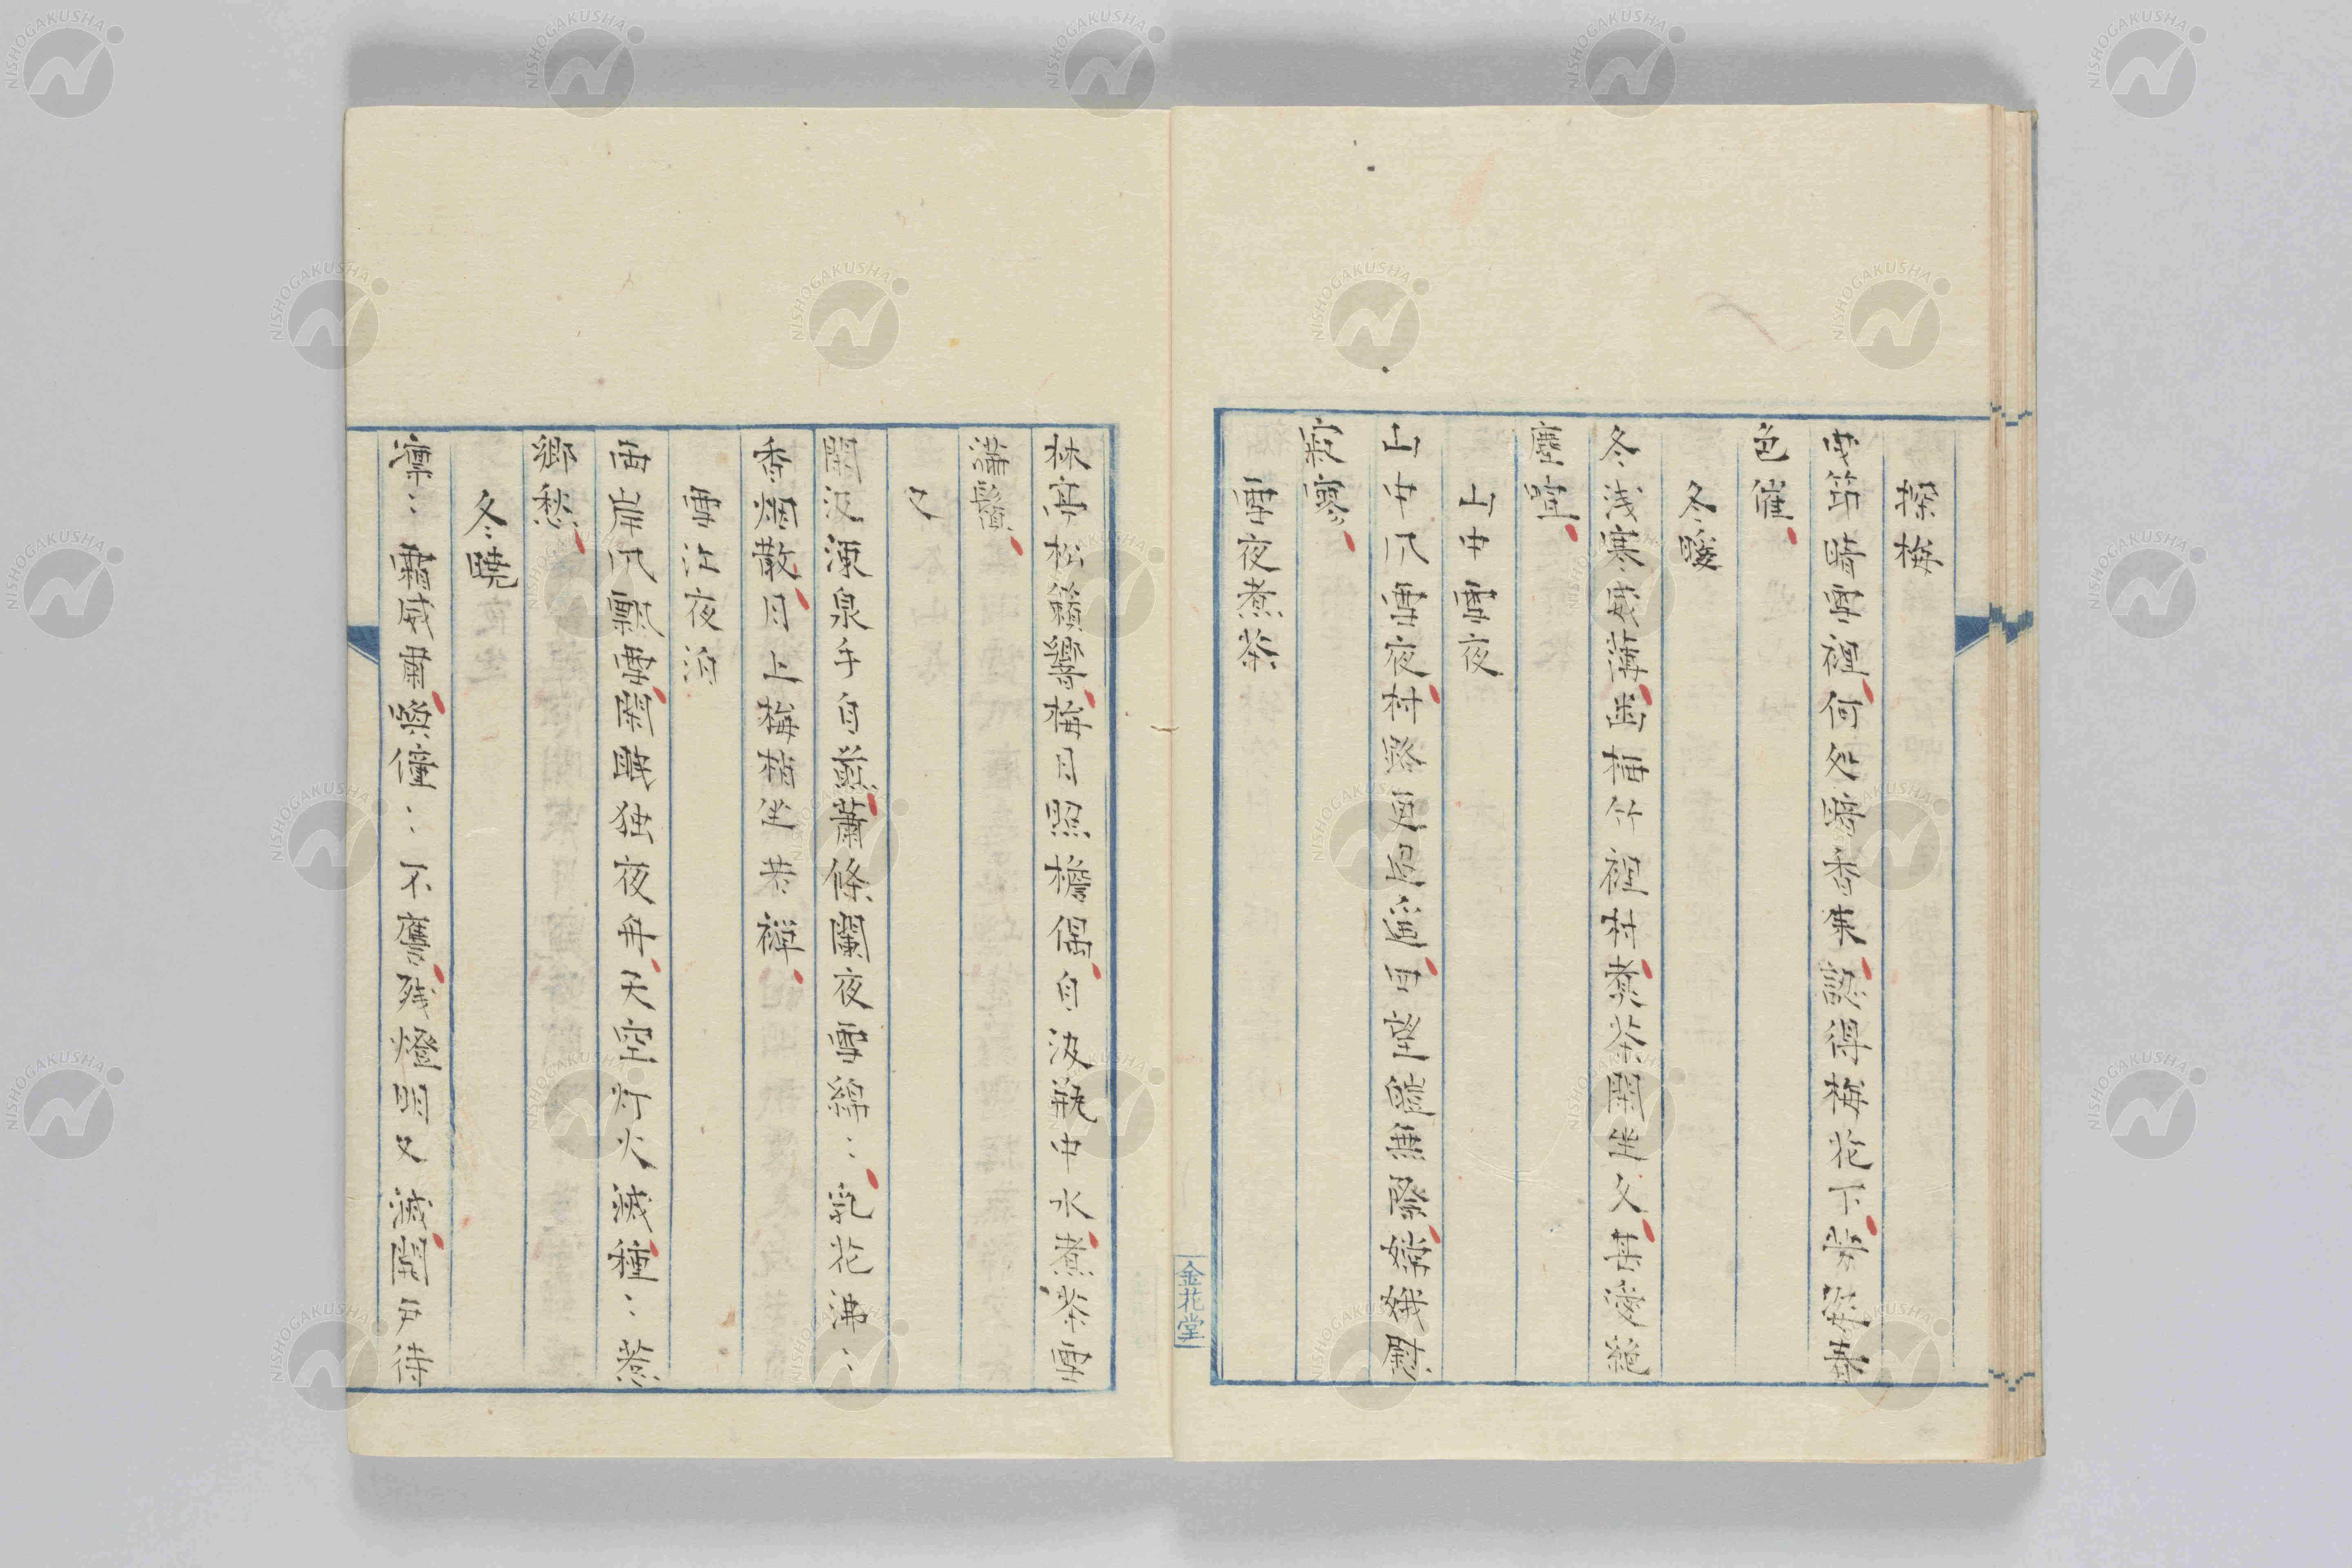 探梅
曳筇晴雪裡何処暗香来認得梅花下暮
色催
冬暖
冬浅寒威薄幽栖竹裡村煮茶閑坐久甚
塵喧
山中雪夜
山中风雪夜村路更望皚無際嫦娥
寂寒
雪夜煮茶
金花堂
林亭松籟響梅月照檐隅自汲瓶中水煮茶雪
満鬚
又
閑汲凍泉手自煎蕭條闌夜雪綿〻乳花沸〻
香烟散月上梅梢坐禅
雪江夜泊
両岸风飄雪閑眠独夜舟天空灯火滅種〻惹
郷愁
冬曉
凛〻霜威粛喚僮〻不譍残燈明又滅閑待